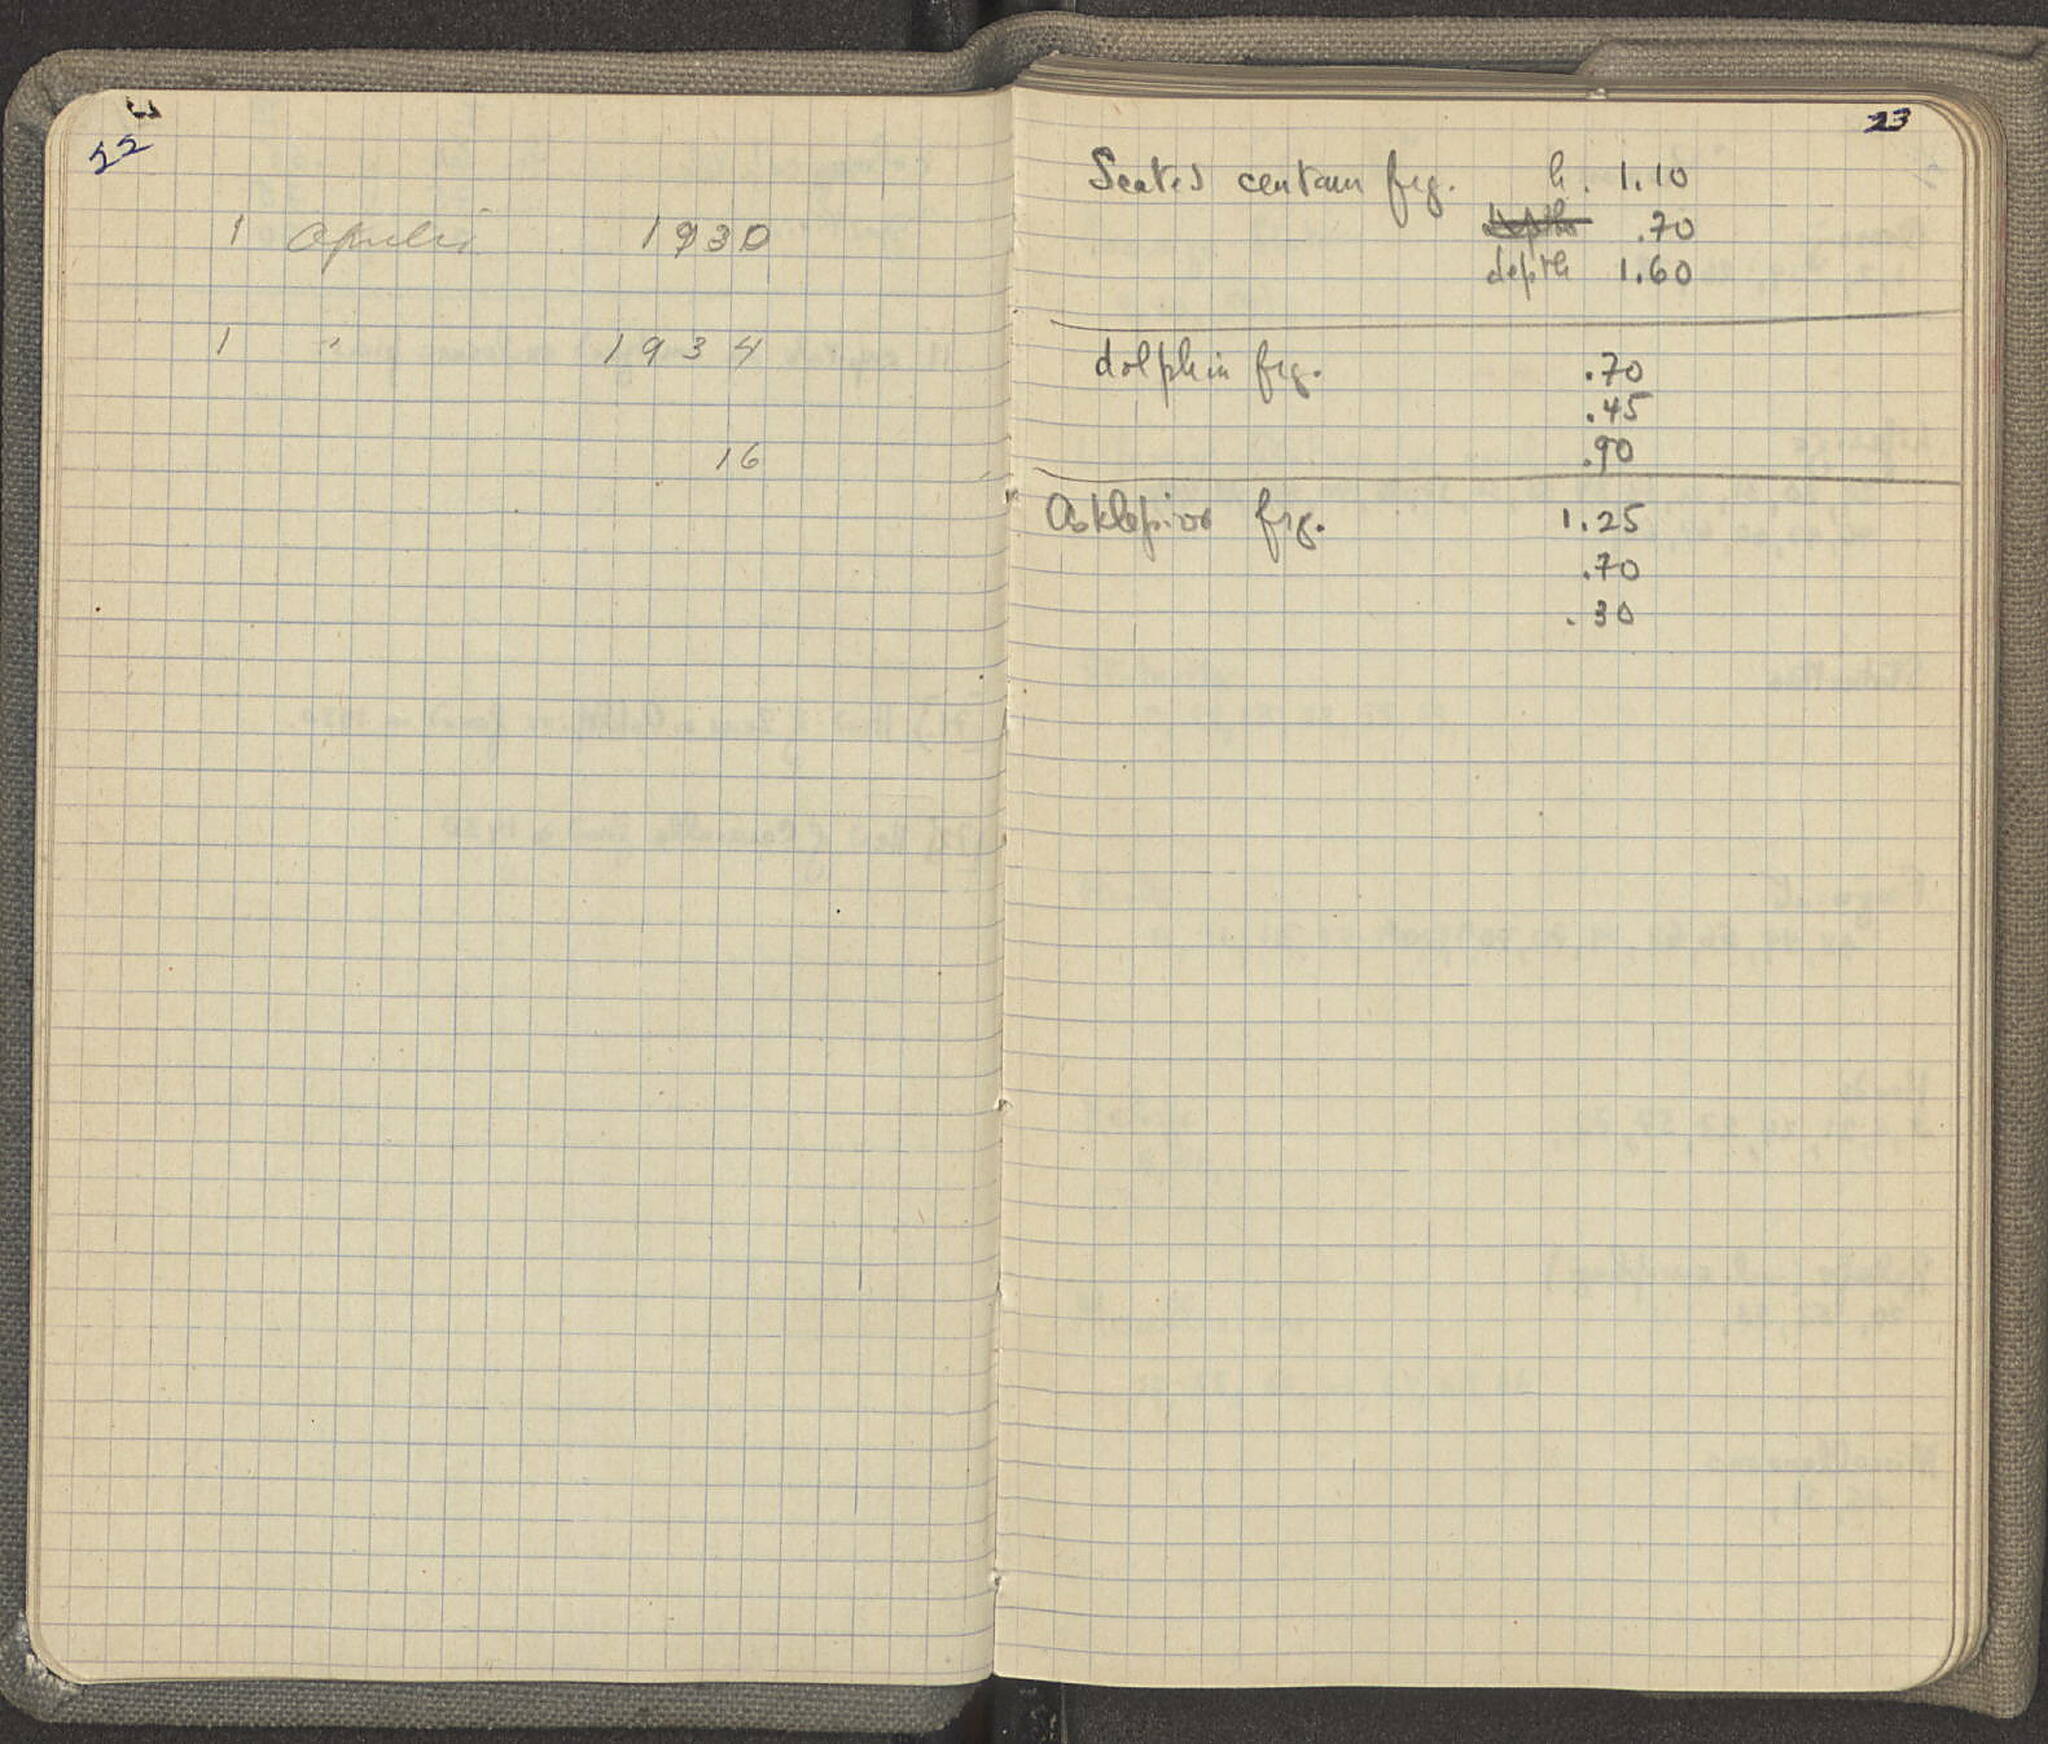 22
1 Aprili 1930
1 " 1934
16
23
Seated centaur frg. h. 1.10
depth .70
depth 1.60
dolphin frg. .70
.45
.90
Asklepios frg. 1.25
.70
.30